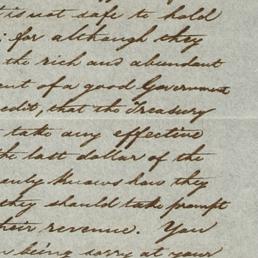 t is not safe to hold
; for although they
the rich and abundant
ent of a good Government
edit, that the Treasury
take any effective
the last dollar of the
knows how they
they should take prompt
their revenue. You
being sorry at your